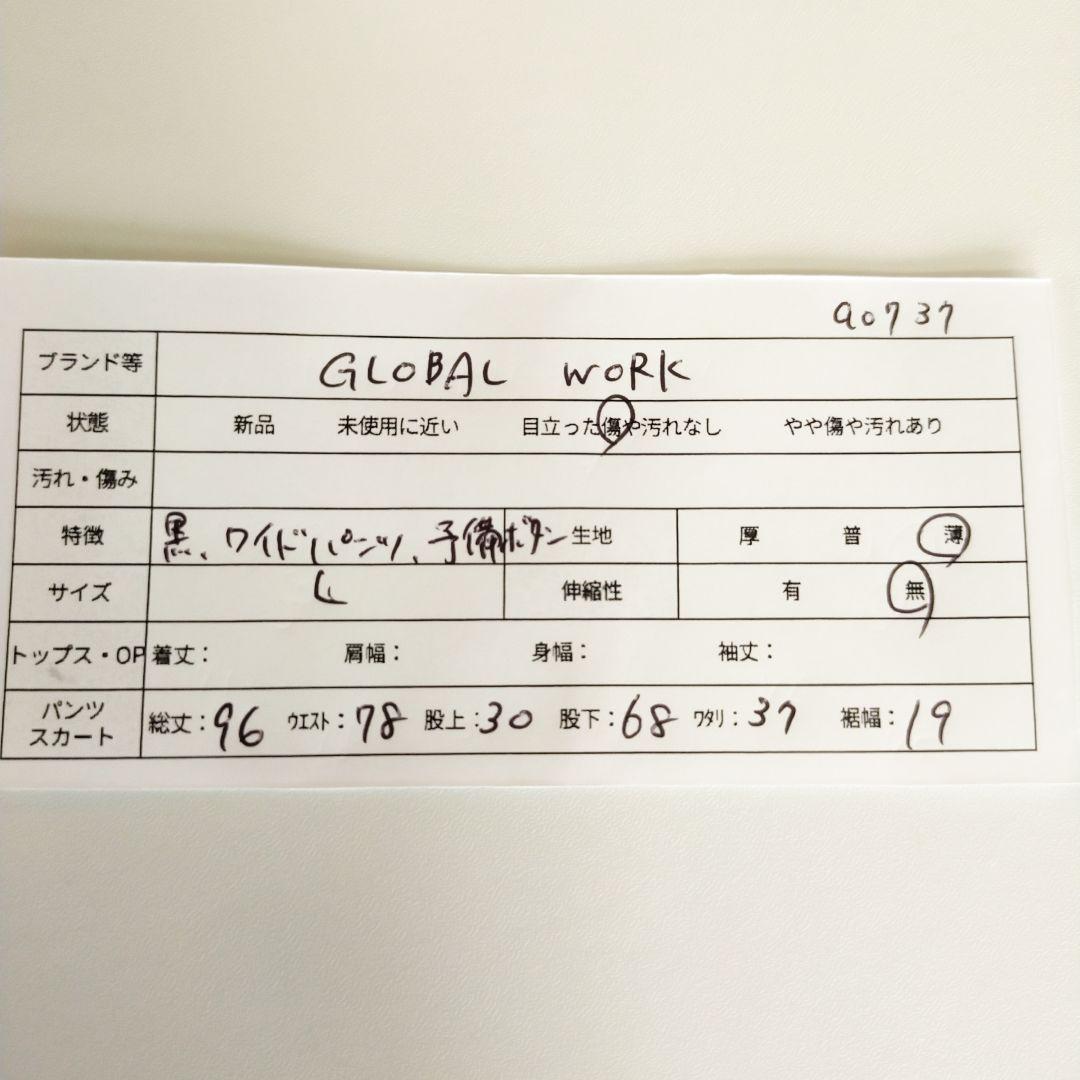 a0737
ブランド等 GLOBAL WORK
状態 新品 未使用に近い 目立った傷や汚れなし やや傷や汚れあり
汚れ・傷み
特徴 黒、ワイドパンツ、予備ボタン 生地 厚 普 薄
サイズ L 伸縮性 有 無
トップス・OP 着丈： 肩幅： 身幅： 袖丈：
パンツ
スカート 総丈：96 ｳｴｽﾄ：78 股上：30 股下：68 ﾜﾀﾘ：37 裾幅：19